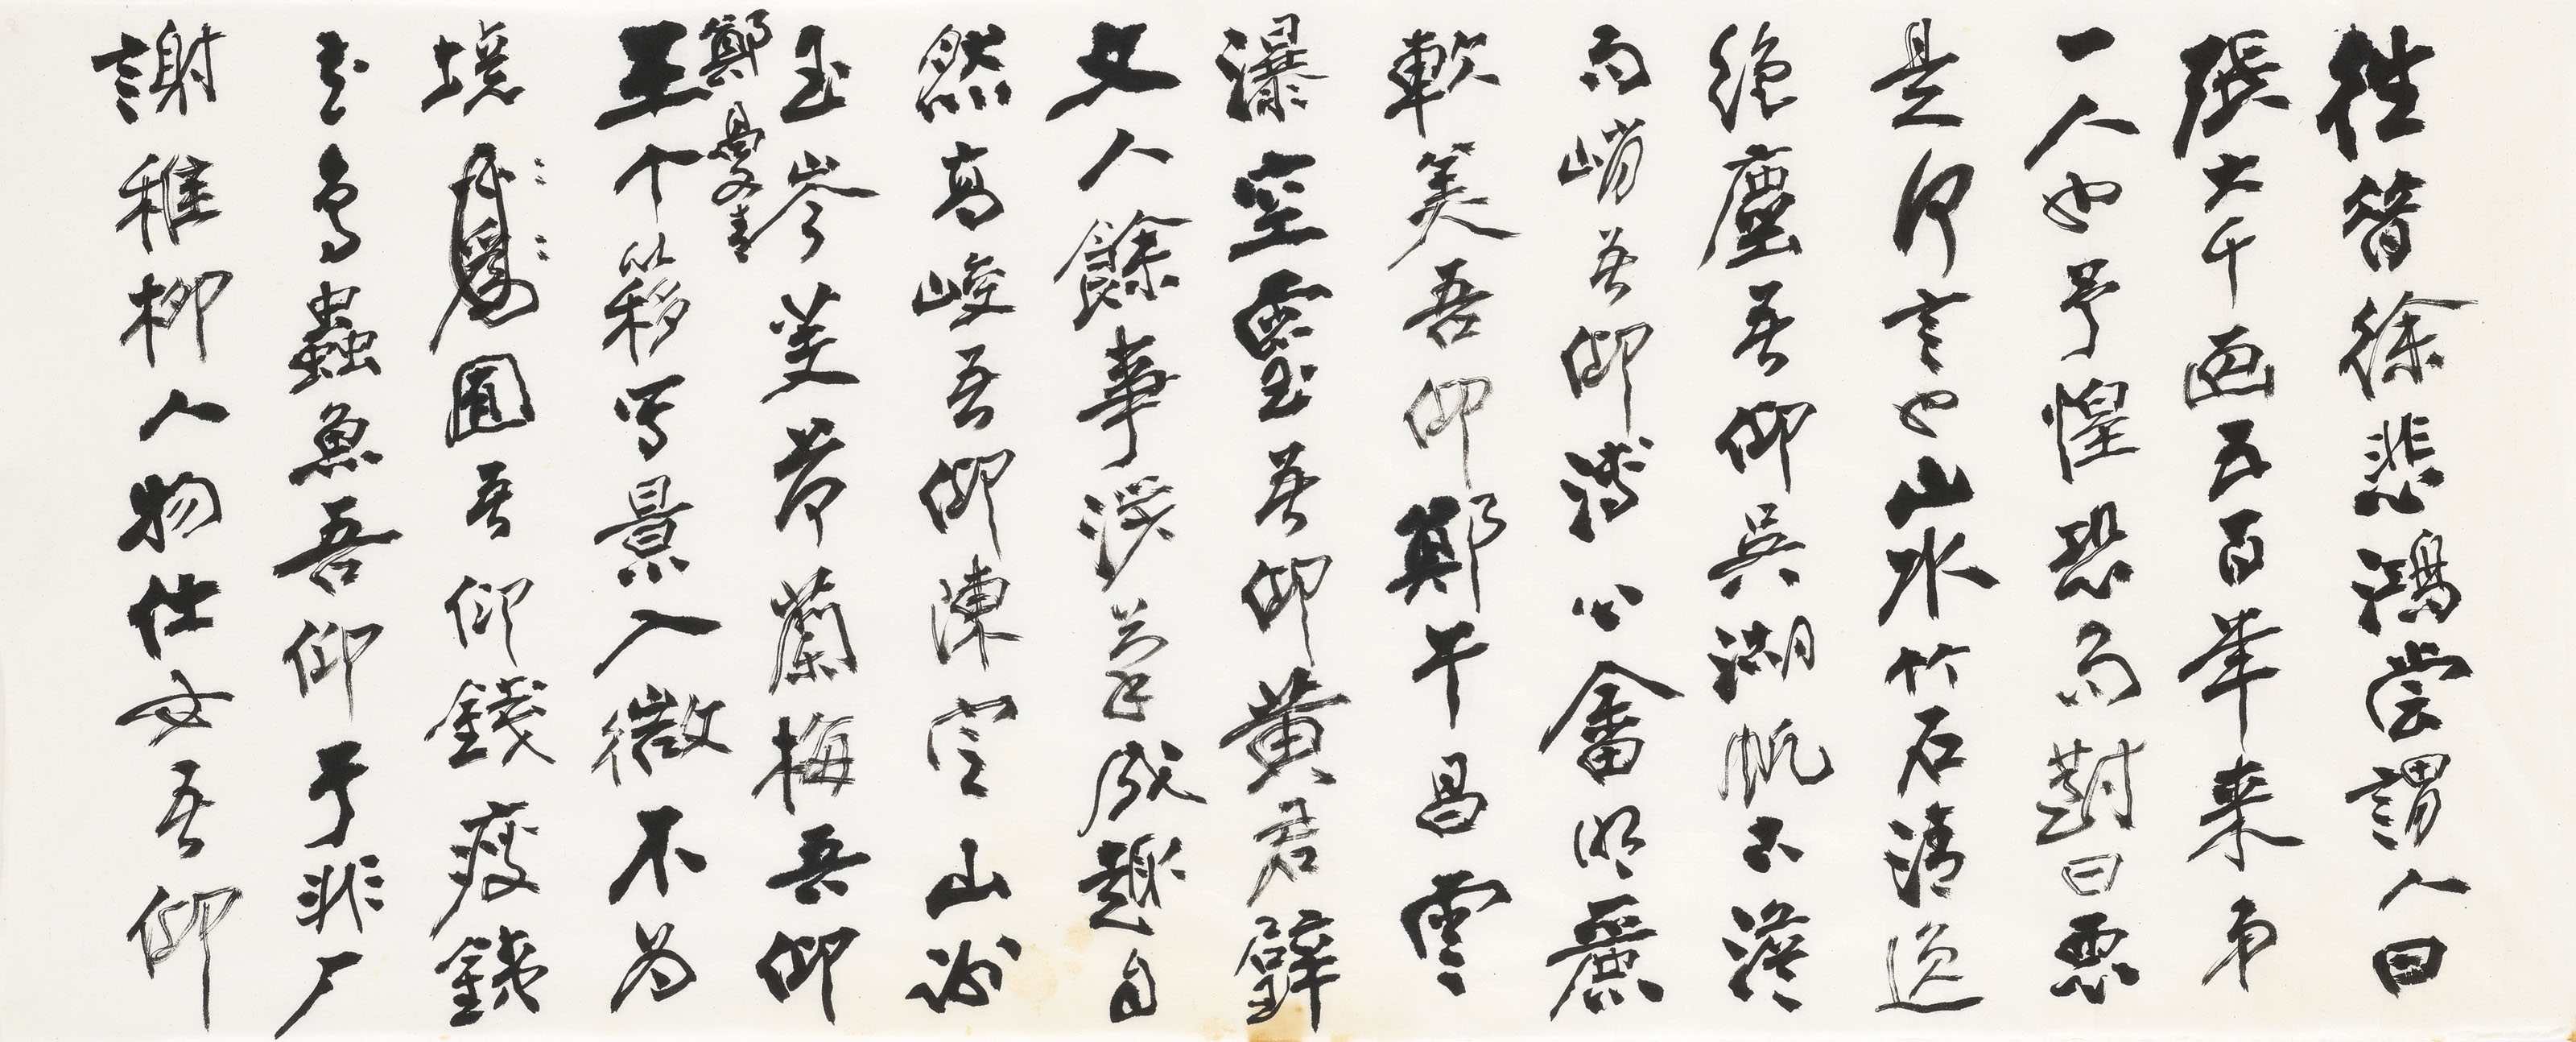 往昔徐悲鴻嘗謂人曰
張大千画五百年来弟
一人也予惶恐而對曰惡
是何言也山水竹石清逸
絕塵吾仰吳湖帆不
而峭吾仰溥心畬明麗
軟美吾仰鄭午昌雲
瀑空靈吾仰黃君璧
文人餘事淡筆成趣自
然高峻吾仰陳定山謝
玉岑芰荷蘭梅吾仰
鄭曼青
王个簃写景入微不为
境囿吾仰錢瘦鐵
花鳥蟲魚吾仰于非厂
謝稚柳人物仕女吾仰